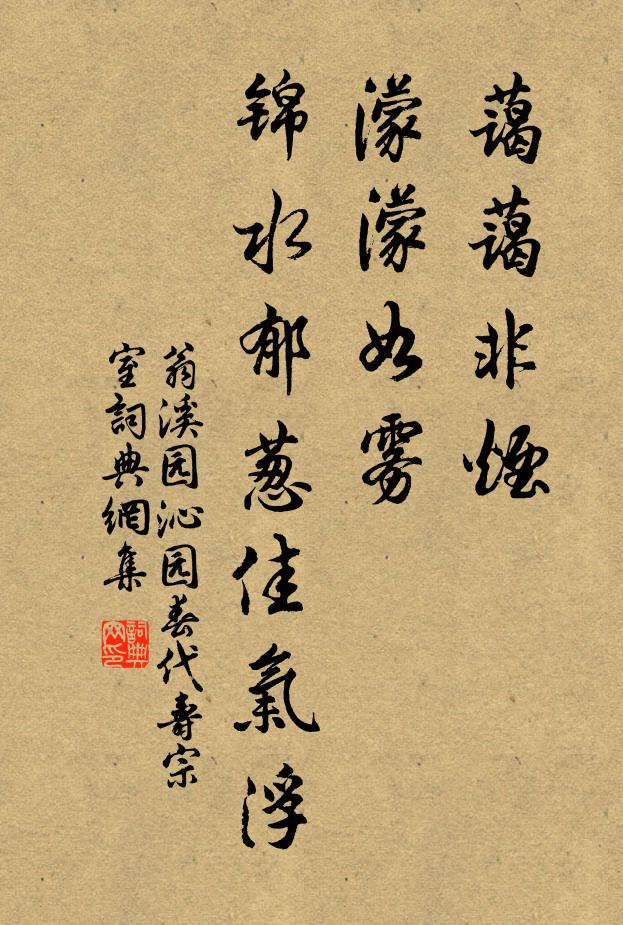 藹藹非煙
濛濛如雾
锦水郁葱佳氣浮
翁溪园沁园春代壽宗
室詞典網集
詞典网印